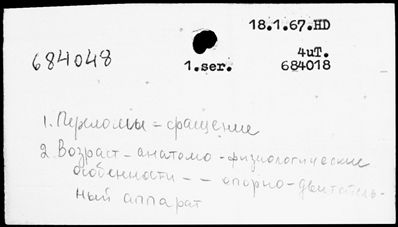 18.1.67.HD
684048
4uT.
1.ser. 684018
1. Переломы - сращение
2. Возраст - анатомо - физиологические
особенности - - опорно-двигатель-
ный аппарат